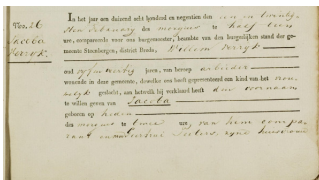 Nro. 26
Jacoba
Perrok.
In het jaar een duizend acht honderd en negentien den een en twentig-
sten February des morgens te half twee
ure, compareerde voor ons burgemeester, beambte van den burgerlijken stand der ge-
meente Steenbergen, district Breda, Willem Perryk
oud vyfenveertig jaren, van beroep arbeider
wonende in deze gemeente, dewelke ons heeft gepresenteerd een kind van het
geslacht, aan hetwelk hij verklaard heeft den voornaam
te willen geven van Jacoba
geboren op heden
des morgens te twee ure, van hem compa-
rant en Pieters zyne huisvrouw